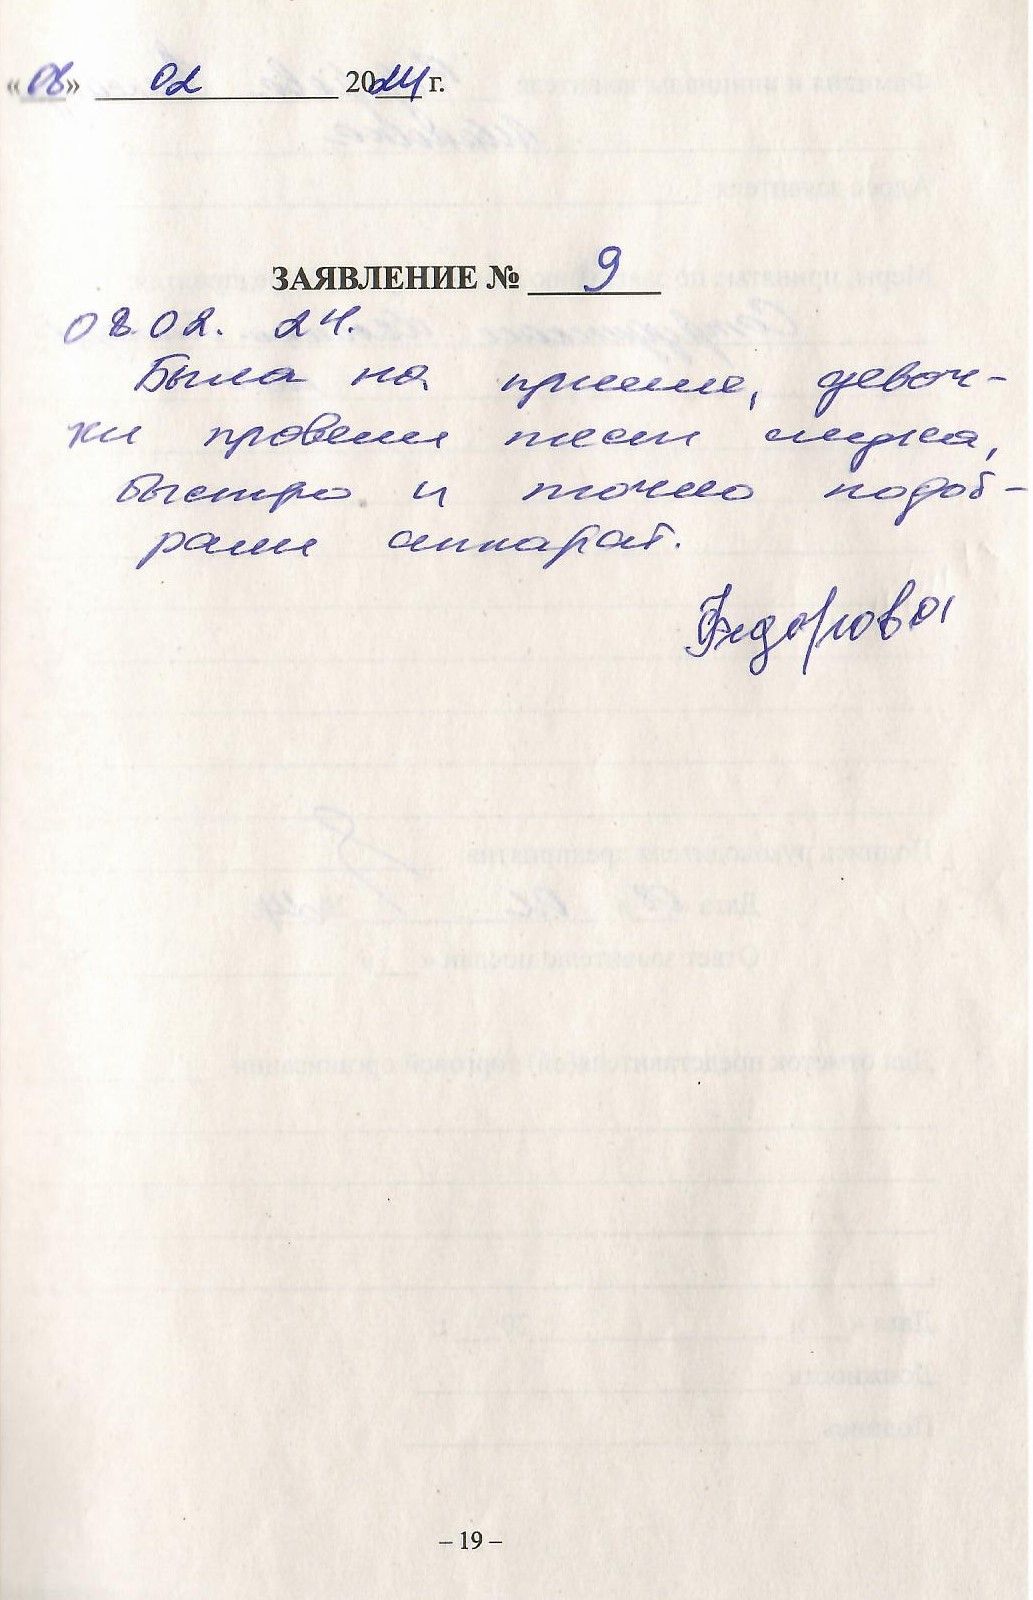 «08» 02 2024 г.
ЗАЯВЛЕНИЕ № 9
08.02.24.
Была на приеме, девоч-
ки провели тест слуха,
быстро и точно подоб-
рали аппарат.
Федорова
– 19 –